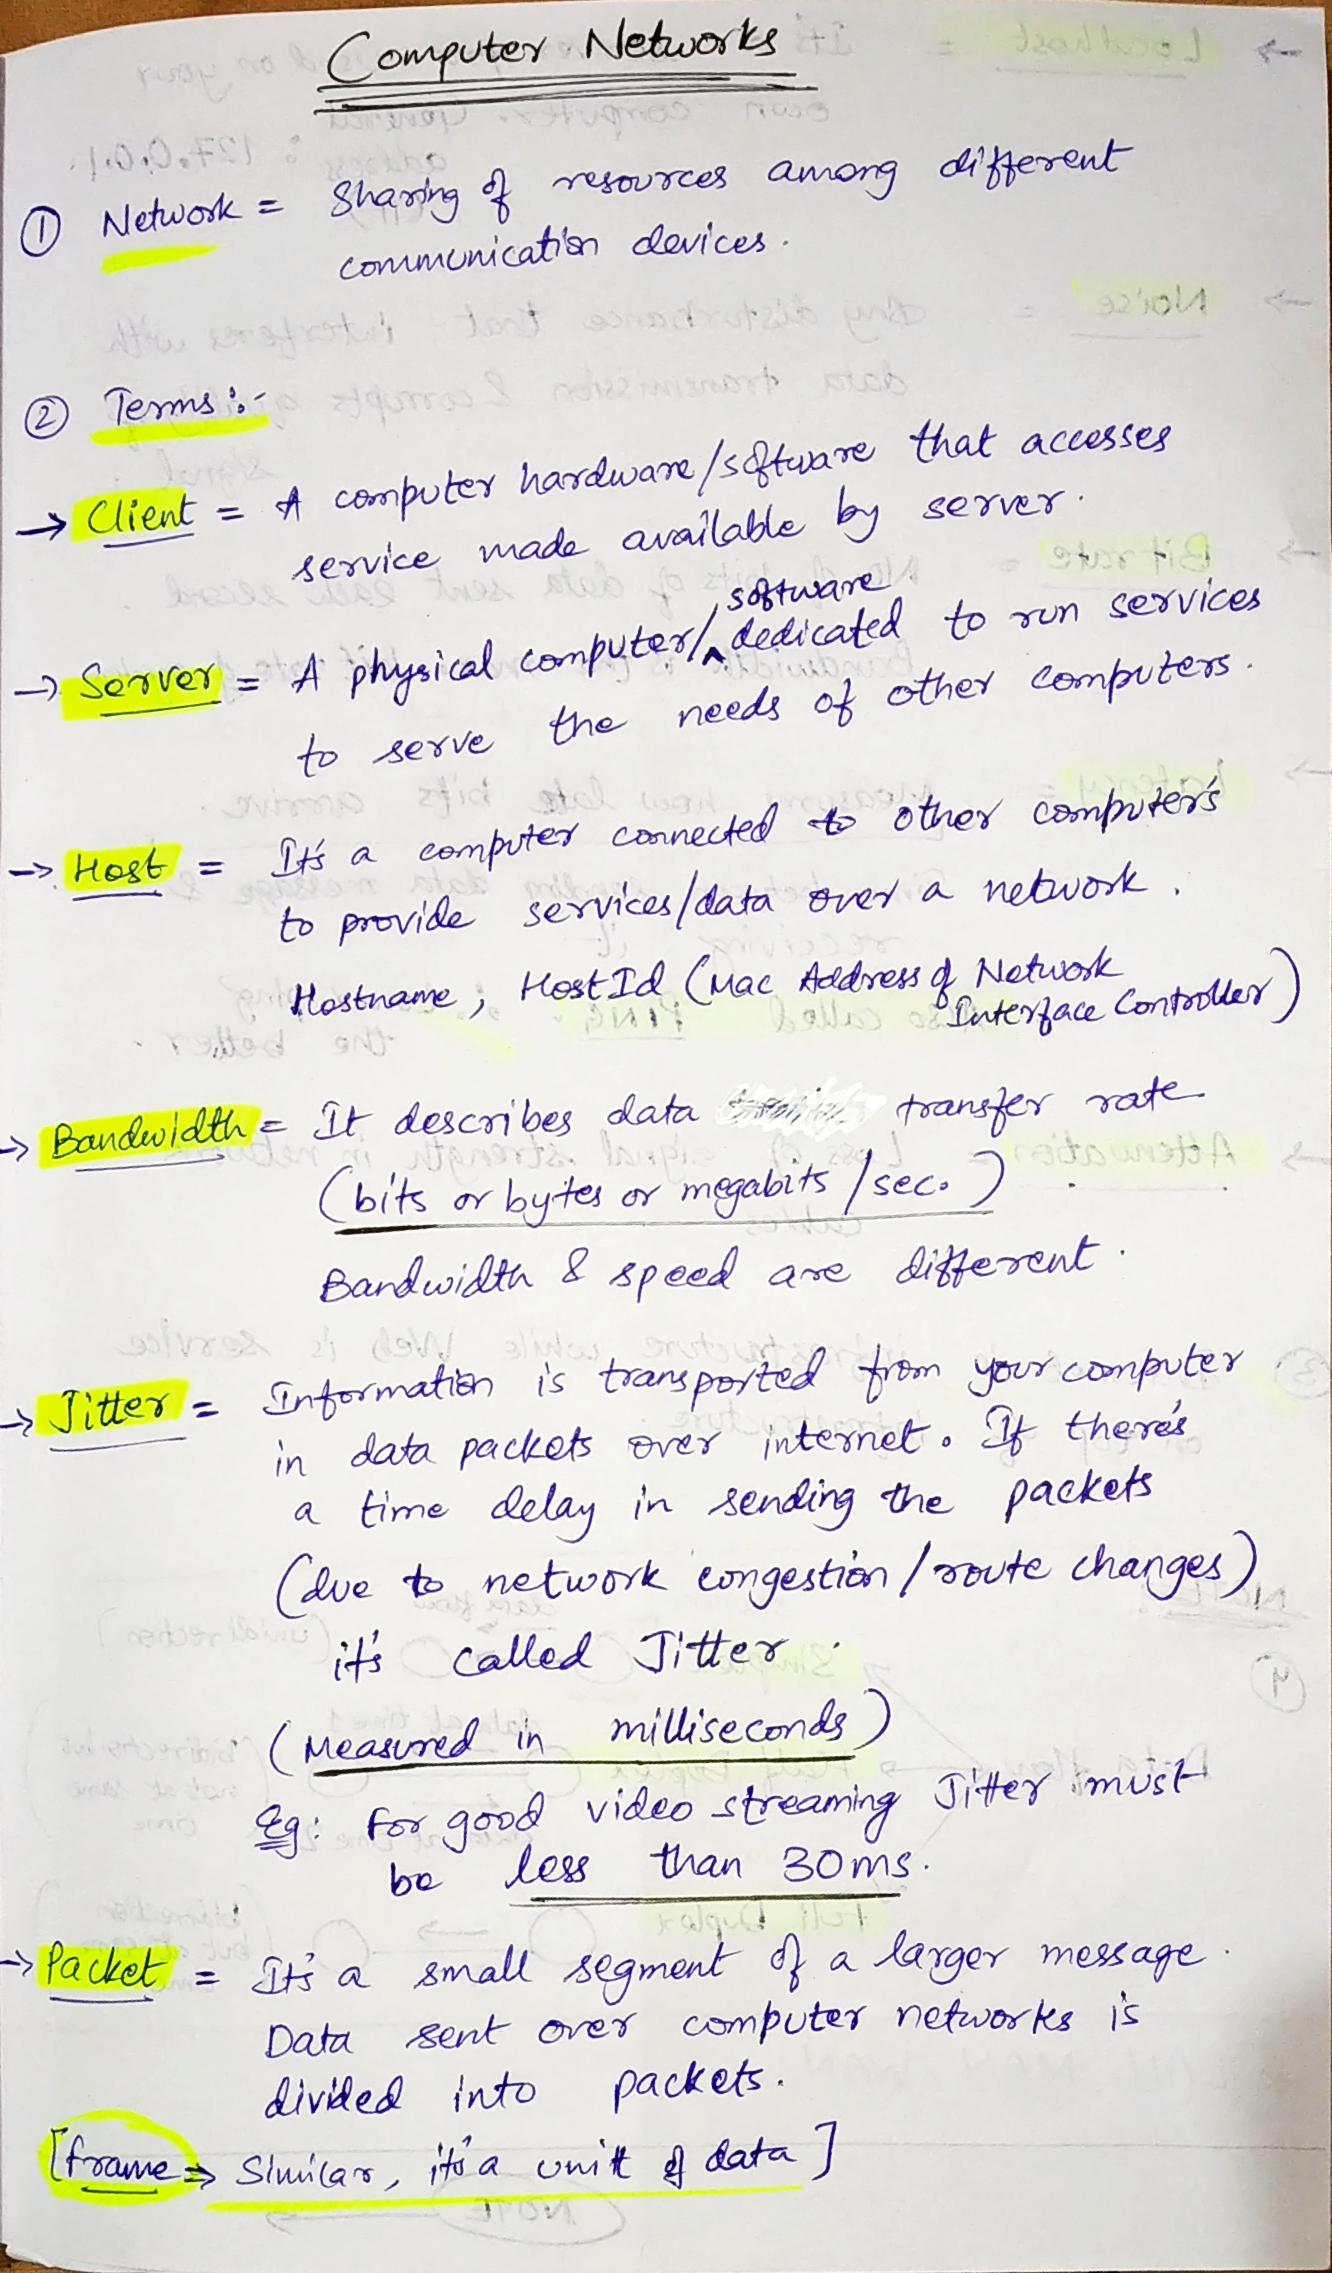 Computer Networks
① Network = Sharing of resources among different
communication devices.
② Terms :-
→ Client = A computer hardware/software that accesses
service made available by server.
software
→ Server = A physical computer/^dedicated to run services
to serve the needs of other computers.
→ Host = It's a computer connected to other computer's
to provide services/data over a network.
Hostname, HostId (Mac Address of Network
Interface Controller)
→ Bandwidth = It describes data transfer rate
(bits or bytes or megabits /sec.)
Bandwidth & speed are different.
→ Jitter = Information is transported from your computer
in data packets over internet. If there's
a time delay in sending the packets
(due to network congestion / route changes)
it's called Jitter.
(Measured in milliseconds)
Eg: for good video streaming Jitter must
be less than 30ms.
→ Packet = It's a small segment of a larger message.
Data sent over computer networks is
divided into packets.
[frame ⇒ Similar, it's a unit of data]